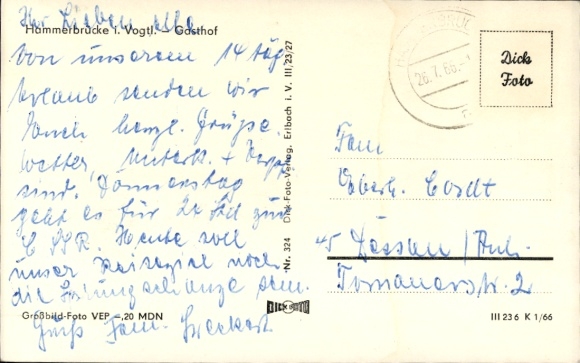 Ihr Lieben alle
Hammerbrücke i. Vogtl. - Gasthof
von unserem 14 täg.
Urlaub senden wir
Euch herzl. Grüße.
Wetter, Unterk. + Verpf.
sind. Donnerstag
geht es für 2 Std zur
CSSR. Heute soll
unser Reiseziel noch
die Sprungschanze sein.
Gruß Fam.
Großbild-Foto VEP -,20 MDN
Nr. 324 Dick-Foto-Verlag, Erlbach i. V. III/23/27
DICK
26.7.66.-
Dick
Foto
Fam
Eberh. Cordt
45 Dessau/Anh.
Tornauerstr. 2
III 23 6 K 1/66